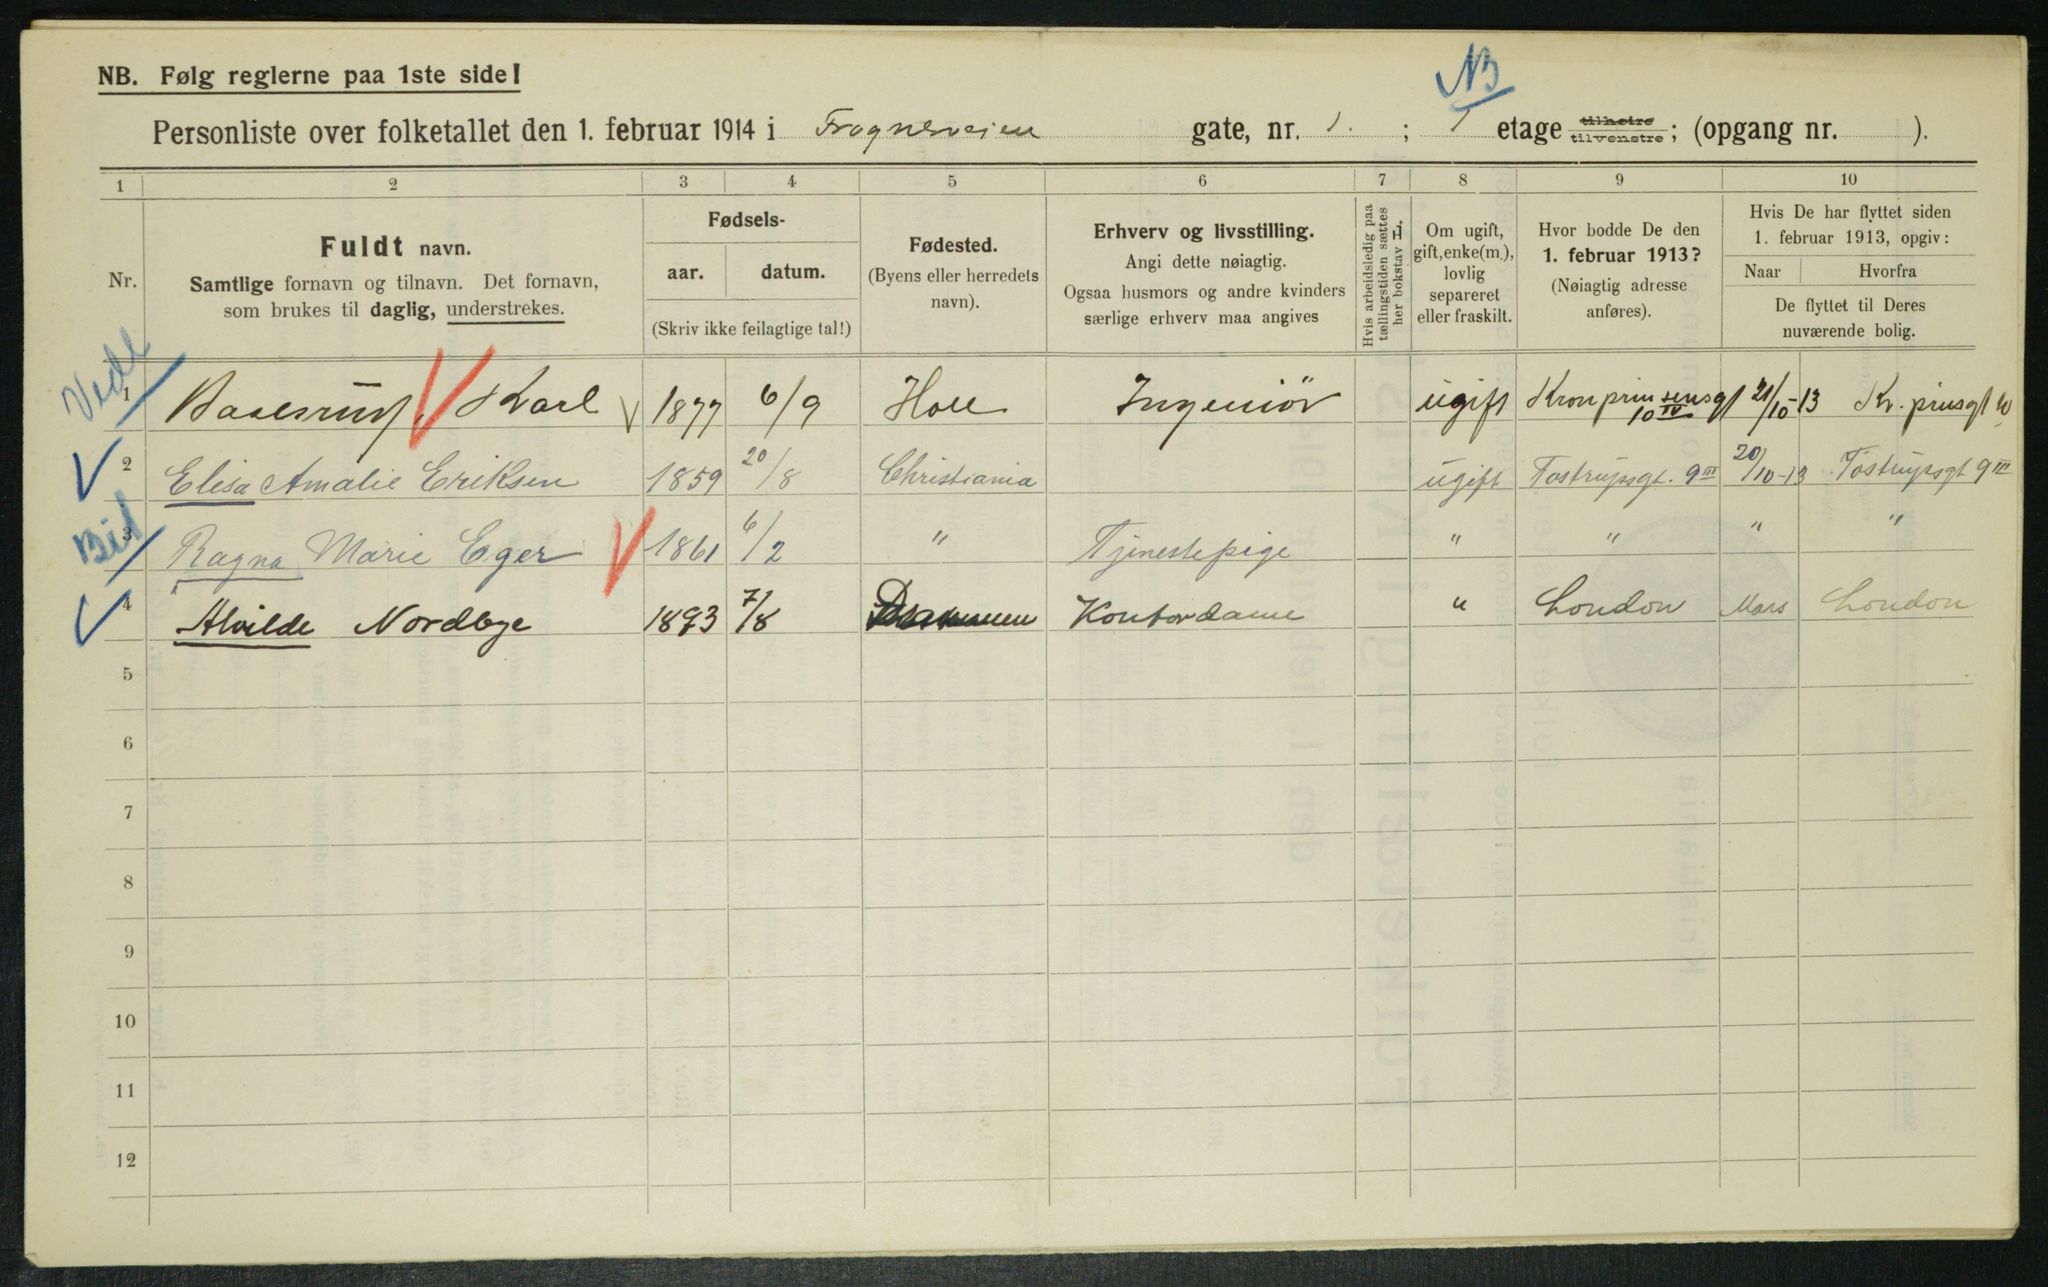 NB
NB. Følg reglerne paa 1ste side!
Personliste over folketallet den 1. februar 1914 i Frognerveien gate, nr. 1. ; 1 etage tilhøire tilvenstre; (opgang nr. ).
1 2 3 4 5 6 7 8 9 10
Nr.
Fuldt navn.
Samtlige fornavn og tilnavn. Det fornavn,
som brukes til daglig, understrekes.
Fødsels-
aar. datum.
(Skriv ikke feilagtige tal!)
Fødested.
(Byens eller herredets
navn).
Erhverv og livsstilling.
Angi dette nøiagtig.
Ogsaa husmors og andre kvinders
særlige erhverv maa angives
Hvis arbeidsledig paa
tællingstiden sættes
her bokstav L.
Om ugift,
gift, enke(m.),
lovlig
separeret
eller fraskilt.
Hvor bodde De den
1. februar 1913?
(Nøiagtig adresse
anføres).
Hvis De har flyttet siden
1. februar 1913, opgiv:
Naar Hvorfra
De flyttet til Deres
nuværende bolig.
1 Karl 1877 6/9 Hole Ingeniör ugift Kronprinsensgt 10 IV 21/10-13 Kr. prinsgt 10
2 Elisa Amalie Eriksen 1859 20/8 Christiania ugift Tostrupsgt. 9 III 20/10-13 Tostrupsgt 9 III
3 Ragna Marie Eger 1861 6/2 " Tjenestepige " " " "
4 Alvilde Nordbye 1893 7/8 Kontordame " London Mars London
5
6
7
8
9
10
11
12